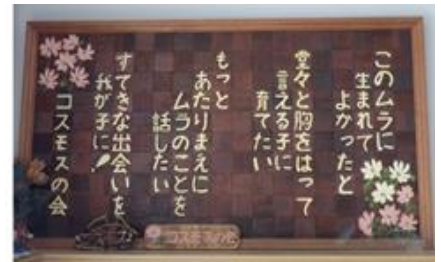 このムラに
生まれて
よかったと
堂々と胸をはって
言える子に
育てたい
もっと
あたりまえに
ムラのことを
話したい
すてきな出会いを
我が子に!
コスモスの会
コスモスの会